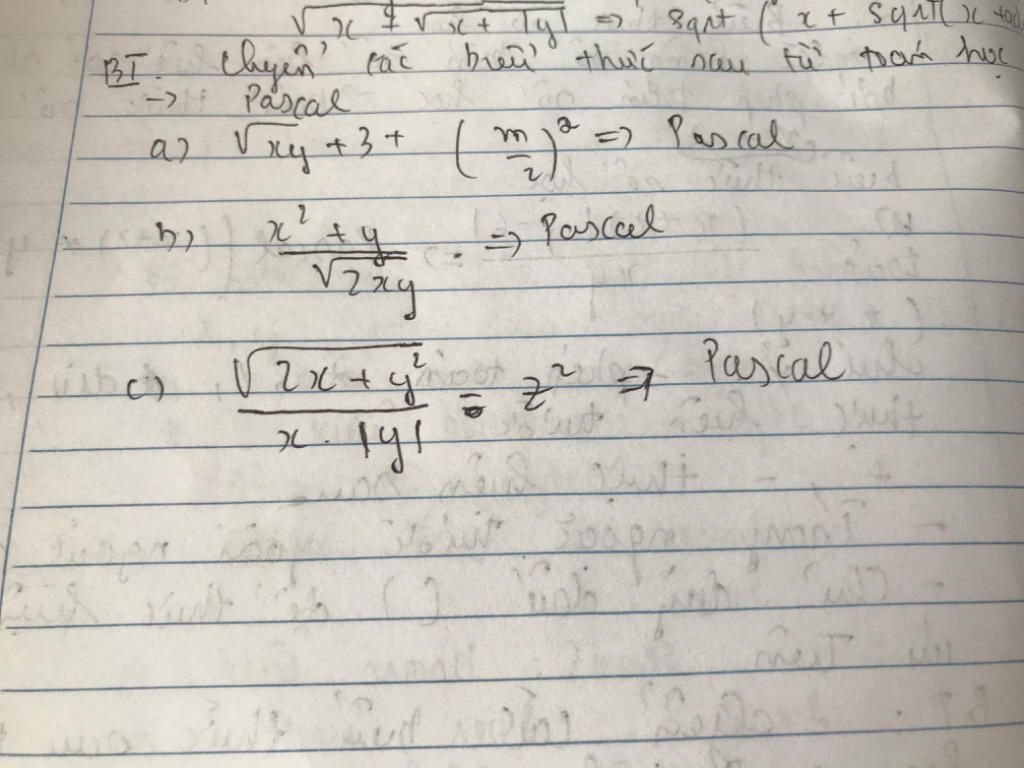 √x + √x + |y| => sqrt ( x + sqrt( x +
BT. chuyển các biểu thức sau từ toán học
-> Pascal
a) √xy + 3 + (m/2)² => Pascal
b) x² + y / √2xy . => Pascal
c) √2x + y² / x . |y| = z² => Pascal